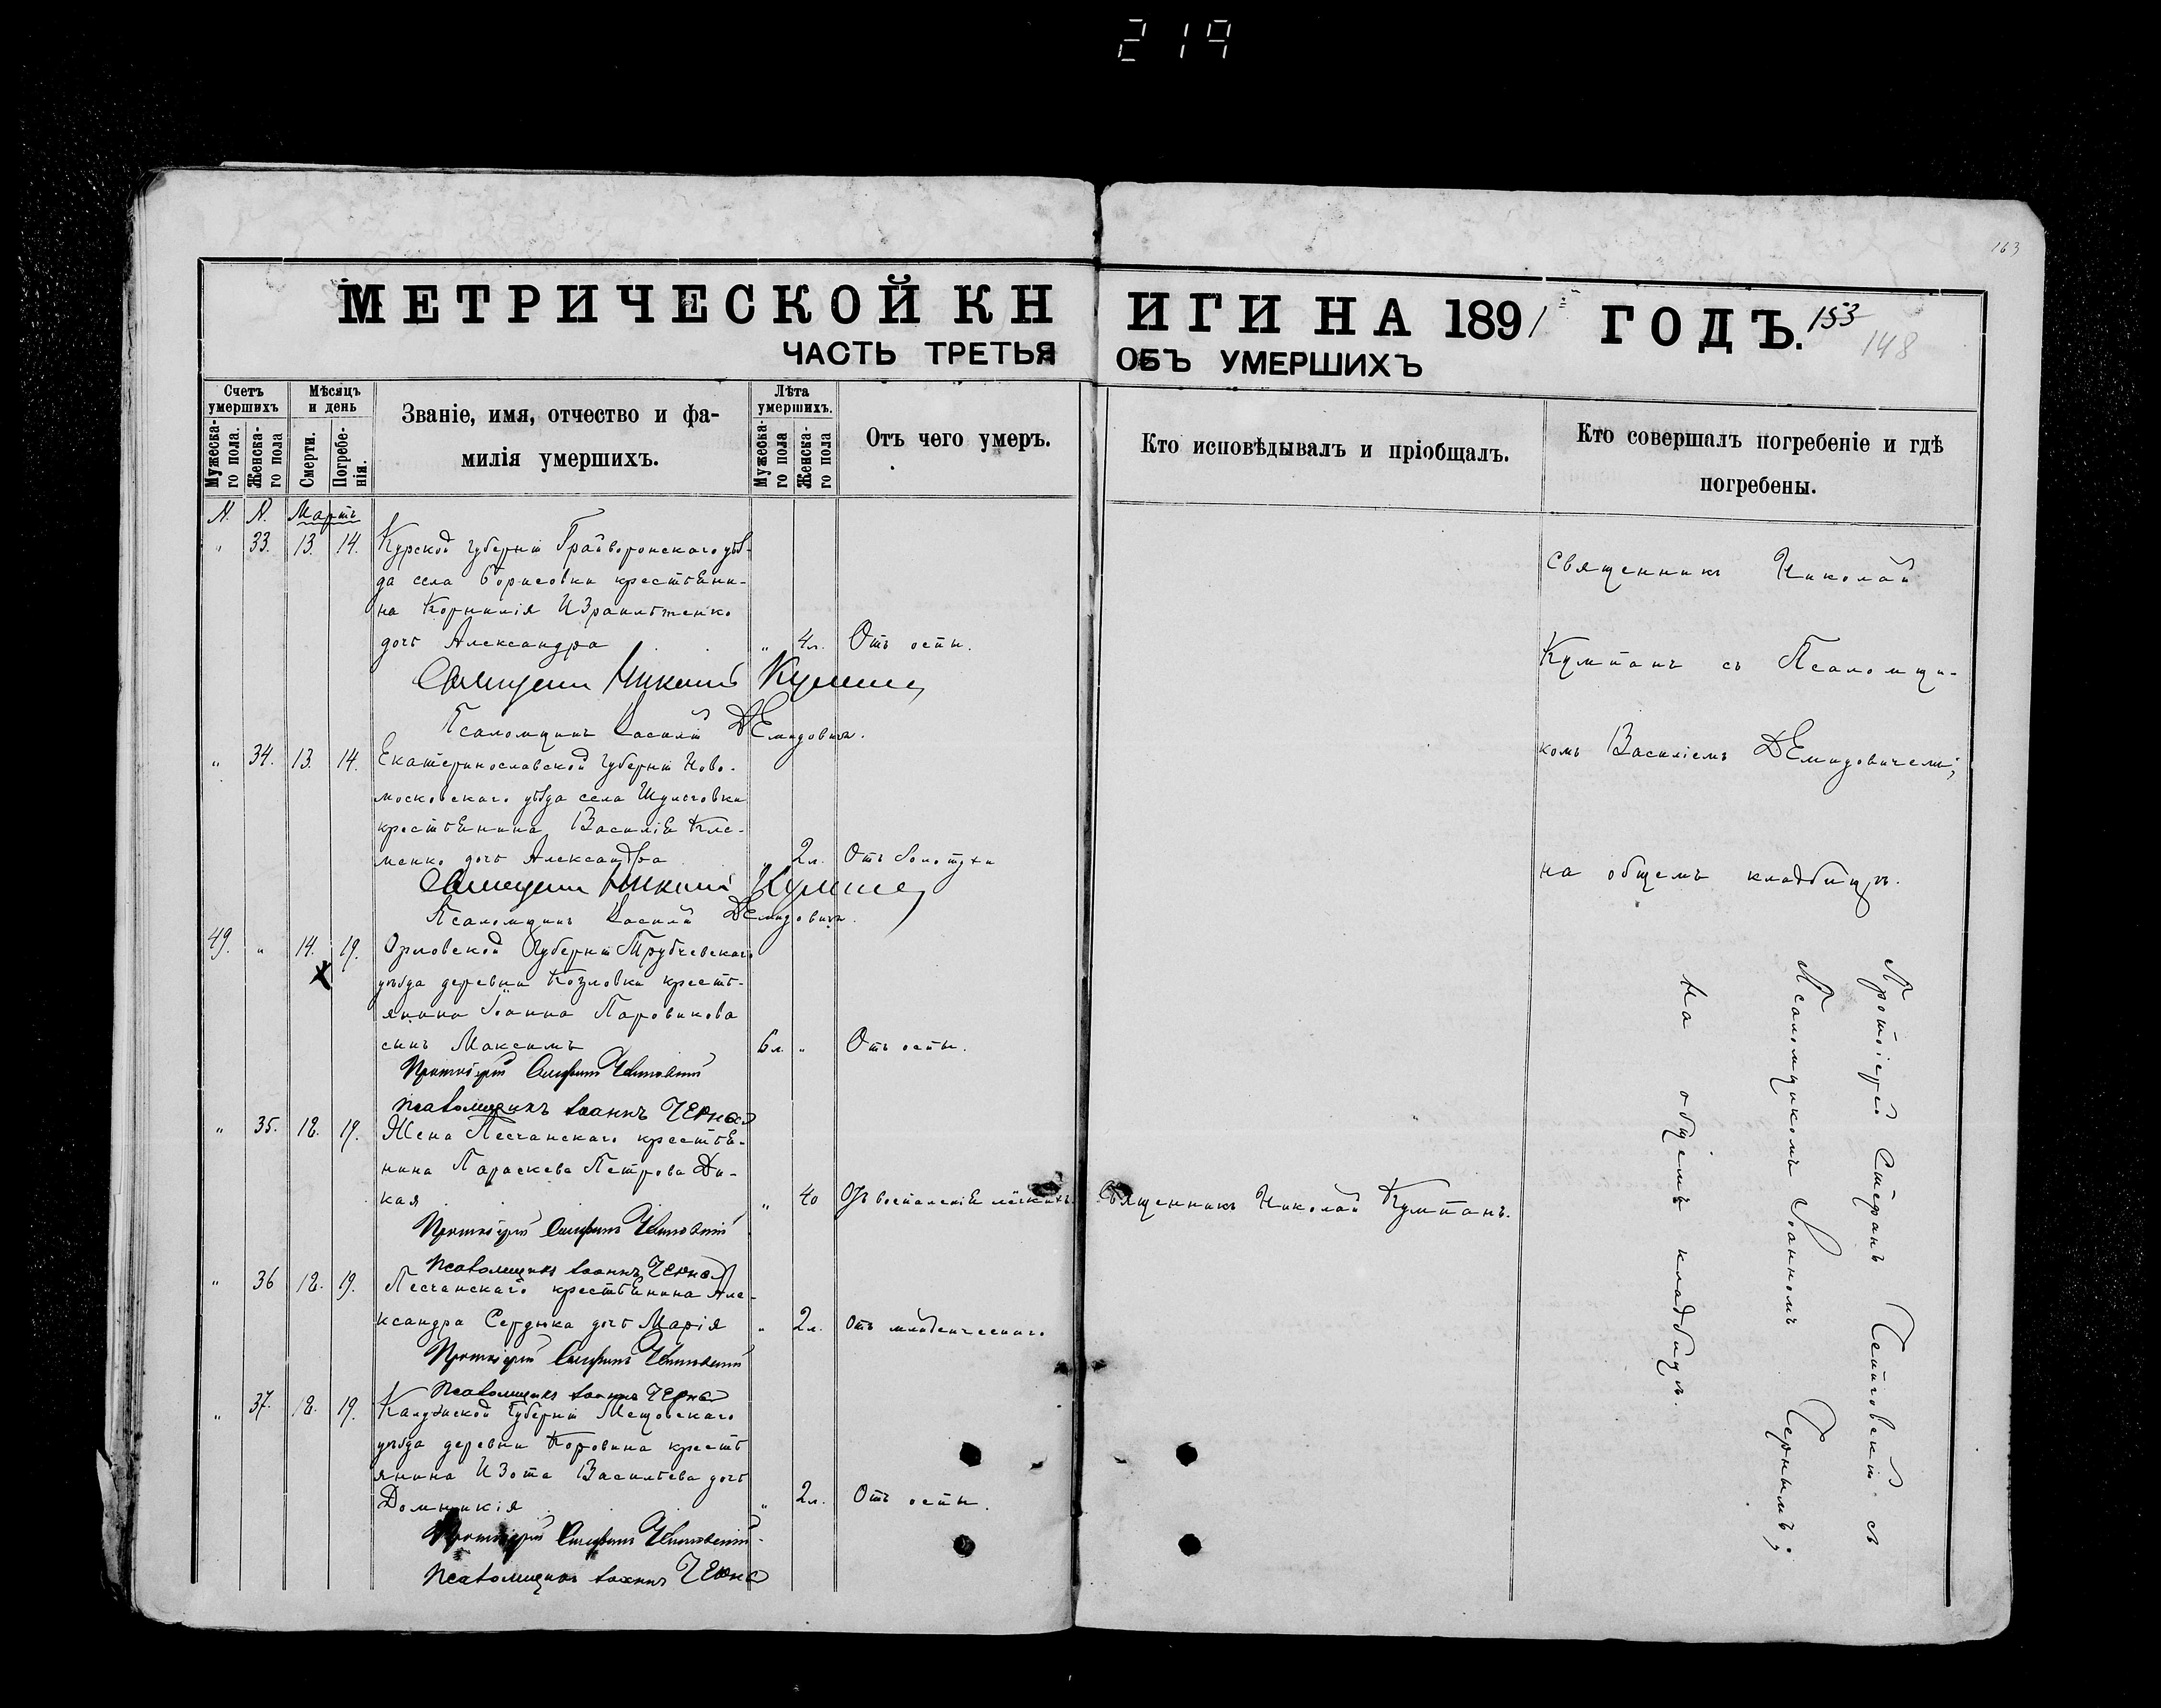 219
163
МЕТРИЧЕСКОЙ КНИГИ НА 1891 ГОДЪ.
153
148
ЧАСТЬ ТРЕТЬЯ ОБЪ УМЕРШИХЪ
Счетъ умершихъ
Мужеска-го пола.
Женска-го пола
Мѣсяцъ и день
Смерти.
Погребе-нія.
Званіе, имя, отчество и фа-
милія умершихъ.
Лѣта умершихъ.
Мужеска-го пола
Женска-го пола
Отъ чего умеръ.
Кто исповѣдывалъ и пріобщалъ.
Кто совершалъ погребеніе и гдѣ
погребены.
N. N. Мартъ
" 33. 13. 14. Курской губерніи Грайворонскаго уѣз-
да села Борисовки крестьяни-
на Корнилія Израильтенко
дочь Александра " 4л. Отъ оспы.
Священникъ Николай
Псаломщикъ Василій Демидовичъ.
" 34. 13. 14. Екатеринославской губерніи Ново-
московскаго уѣзда села Шульговки
крестьянина Василія Кле-
менко дочь Александра " 2л. Отъ золотухи
Священникъ Николай
Псаломщикъ Василій Демидовичъ.
49. " 14. 19. Орловской губерніи Трубчевскаго
уѣзда деревни Козловки кресть-
янина Іоанна Паровикова
сынъ Максимъ 6л. " Отъ оспы.
Протоіерей Стефанъ
Псаломщикъ Іоаннъ Черный
" 35. 18. 19. Жена Песчанскаго крестья-
нина Параскева Петрова Ди-
кая " 40 Отъ воспаленія легкихъ. Священникъ Николай Кумпанъ.
Протоіерей Стефанъ
Псаломщикъ Іоаннъ Черный
" 36 18. 19. Песчанскаго крестьянина Але-
ксандра Сердюка дочь Марія " 2л. Отъ младенческаго
Протоіерей Стефанъ
Псаломщикъ Іоаннъ Черный
" 37. 18. 19. Калужской губерніи Мещовскаго
уѣзда деревни Коровина кресть
янина Изота Васильева дочь
Домникія " 2л. Отъ оспы.
Протоіерей Стефанъ
Псаломщикъ Іоаннъ Черный
Священникъ Николай
Кумпанъ съ Псаломщи-
комъ Василіемъ Демидовичемъ;
на общемъ кладбищѣ.
Протоіерей Стефанъ съ
Псаломщикомъ Іоанномъ Чернымъ;
на общемъ кладбищѣ.